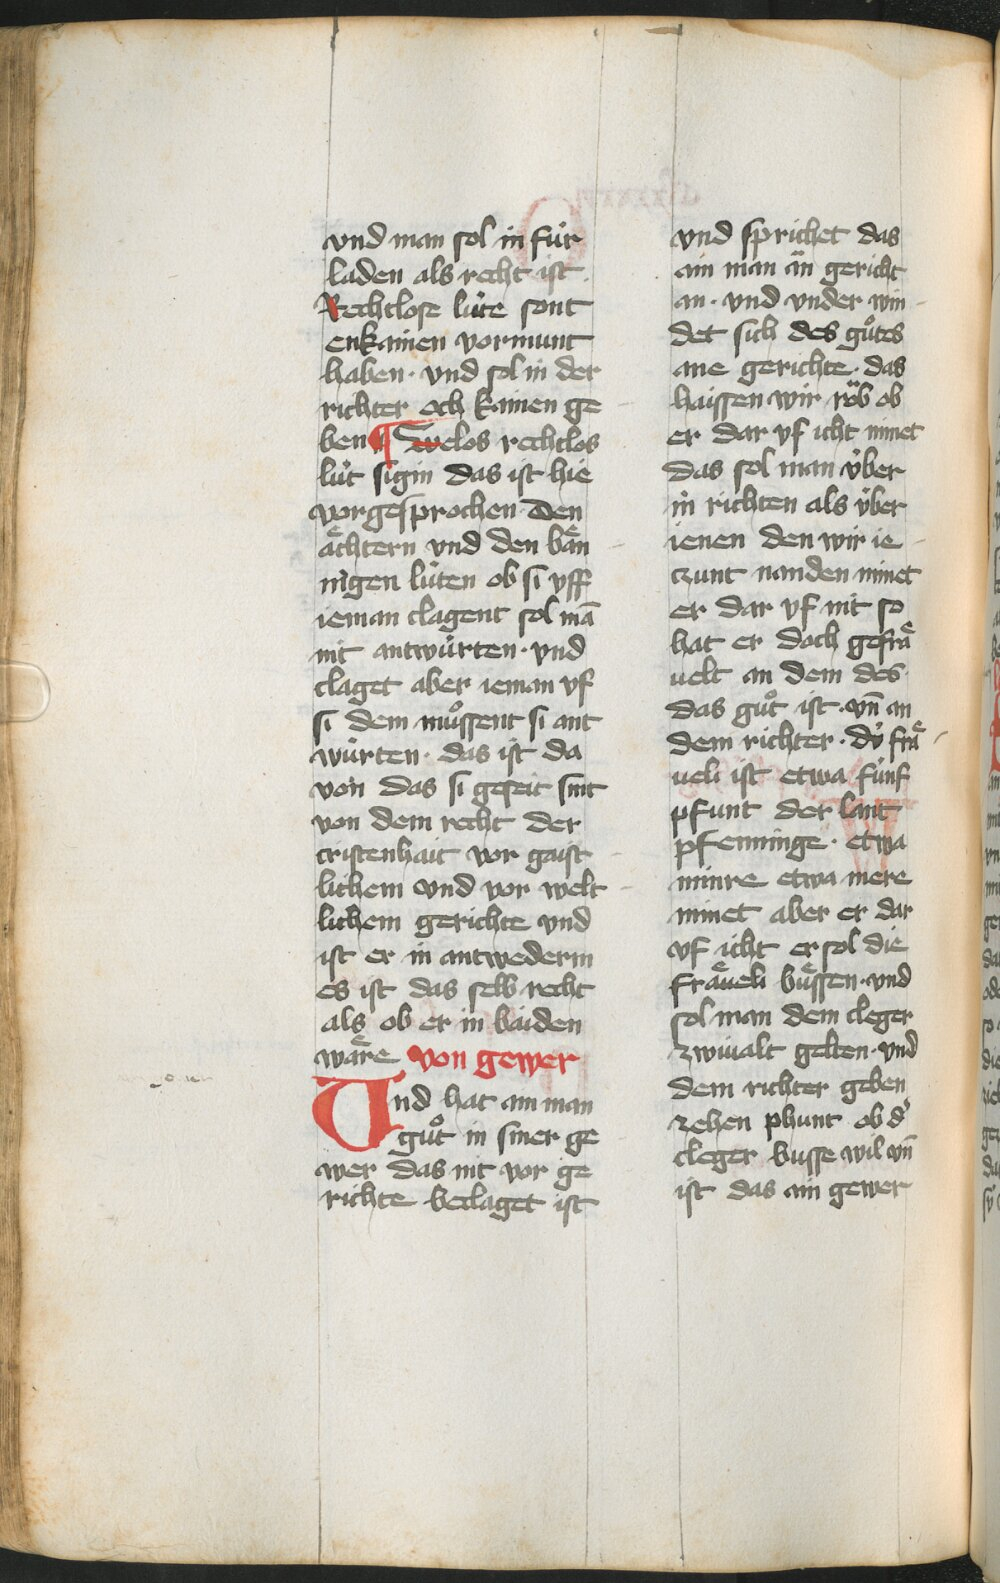 vnd man sol in fuͤr
laden als recht ist.
Rechtlose luͤte sont
enkainen vormunt
haben · vnd sol in der
richter och kainen ge
ben ¶ Swelos rechtlos
luͤt sigin das ist hie
vorgesprochen den
aͤchtern vnd den baͤn
nigen luͤten ob si vff
ieman clagent sol mā
nit antwuͤrten · vnd
claget aber ieman vf
si dem muͦssent si ant
wuͤrten · das ist da
von das si geseit sint
von dem recht der
cristenhait vor gaist
lichem vnd vor welt
lichem gerichte vnd
ist er in antwederm
es ist das selb recht
als ob er in baiden
waͤre von gewer
Und hat ain man
guͦt in siner ge
wer das nit vor ge
richte beclaget ist
vnd sprichet das
ain man aͤn gericht
an · vnd vnder win
det sich des guͦtes
ane gerichte · das
haissen wir roͮb ob
er dar vf icht nimet
das sol man v̈ber
in richten als v̈ber
ienen den wir ie
czunt nanden nimet
er dar vf nit so
hat er doch gefraͤ
uelt an dem des
das guͦt ist · vn̄ an
dem richter · dv̈ fraͤ
ueli ist etwa fuͤnf
pfunt der lant
pfenninge · etwa
minre etwa mere
nimet aber er dar
vf icht er sol die
fraͤueli buͤssen · vnd
sol man dem cleger
zwiualt gelten · vnd
dem richter geben
zehen phunt ob d'
cleger busse wil vn̄
ist das ain gewer